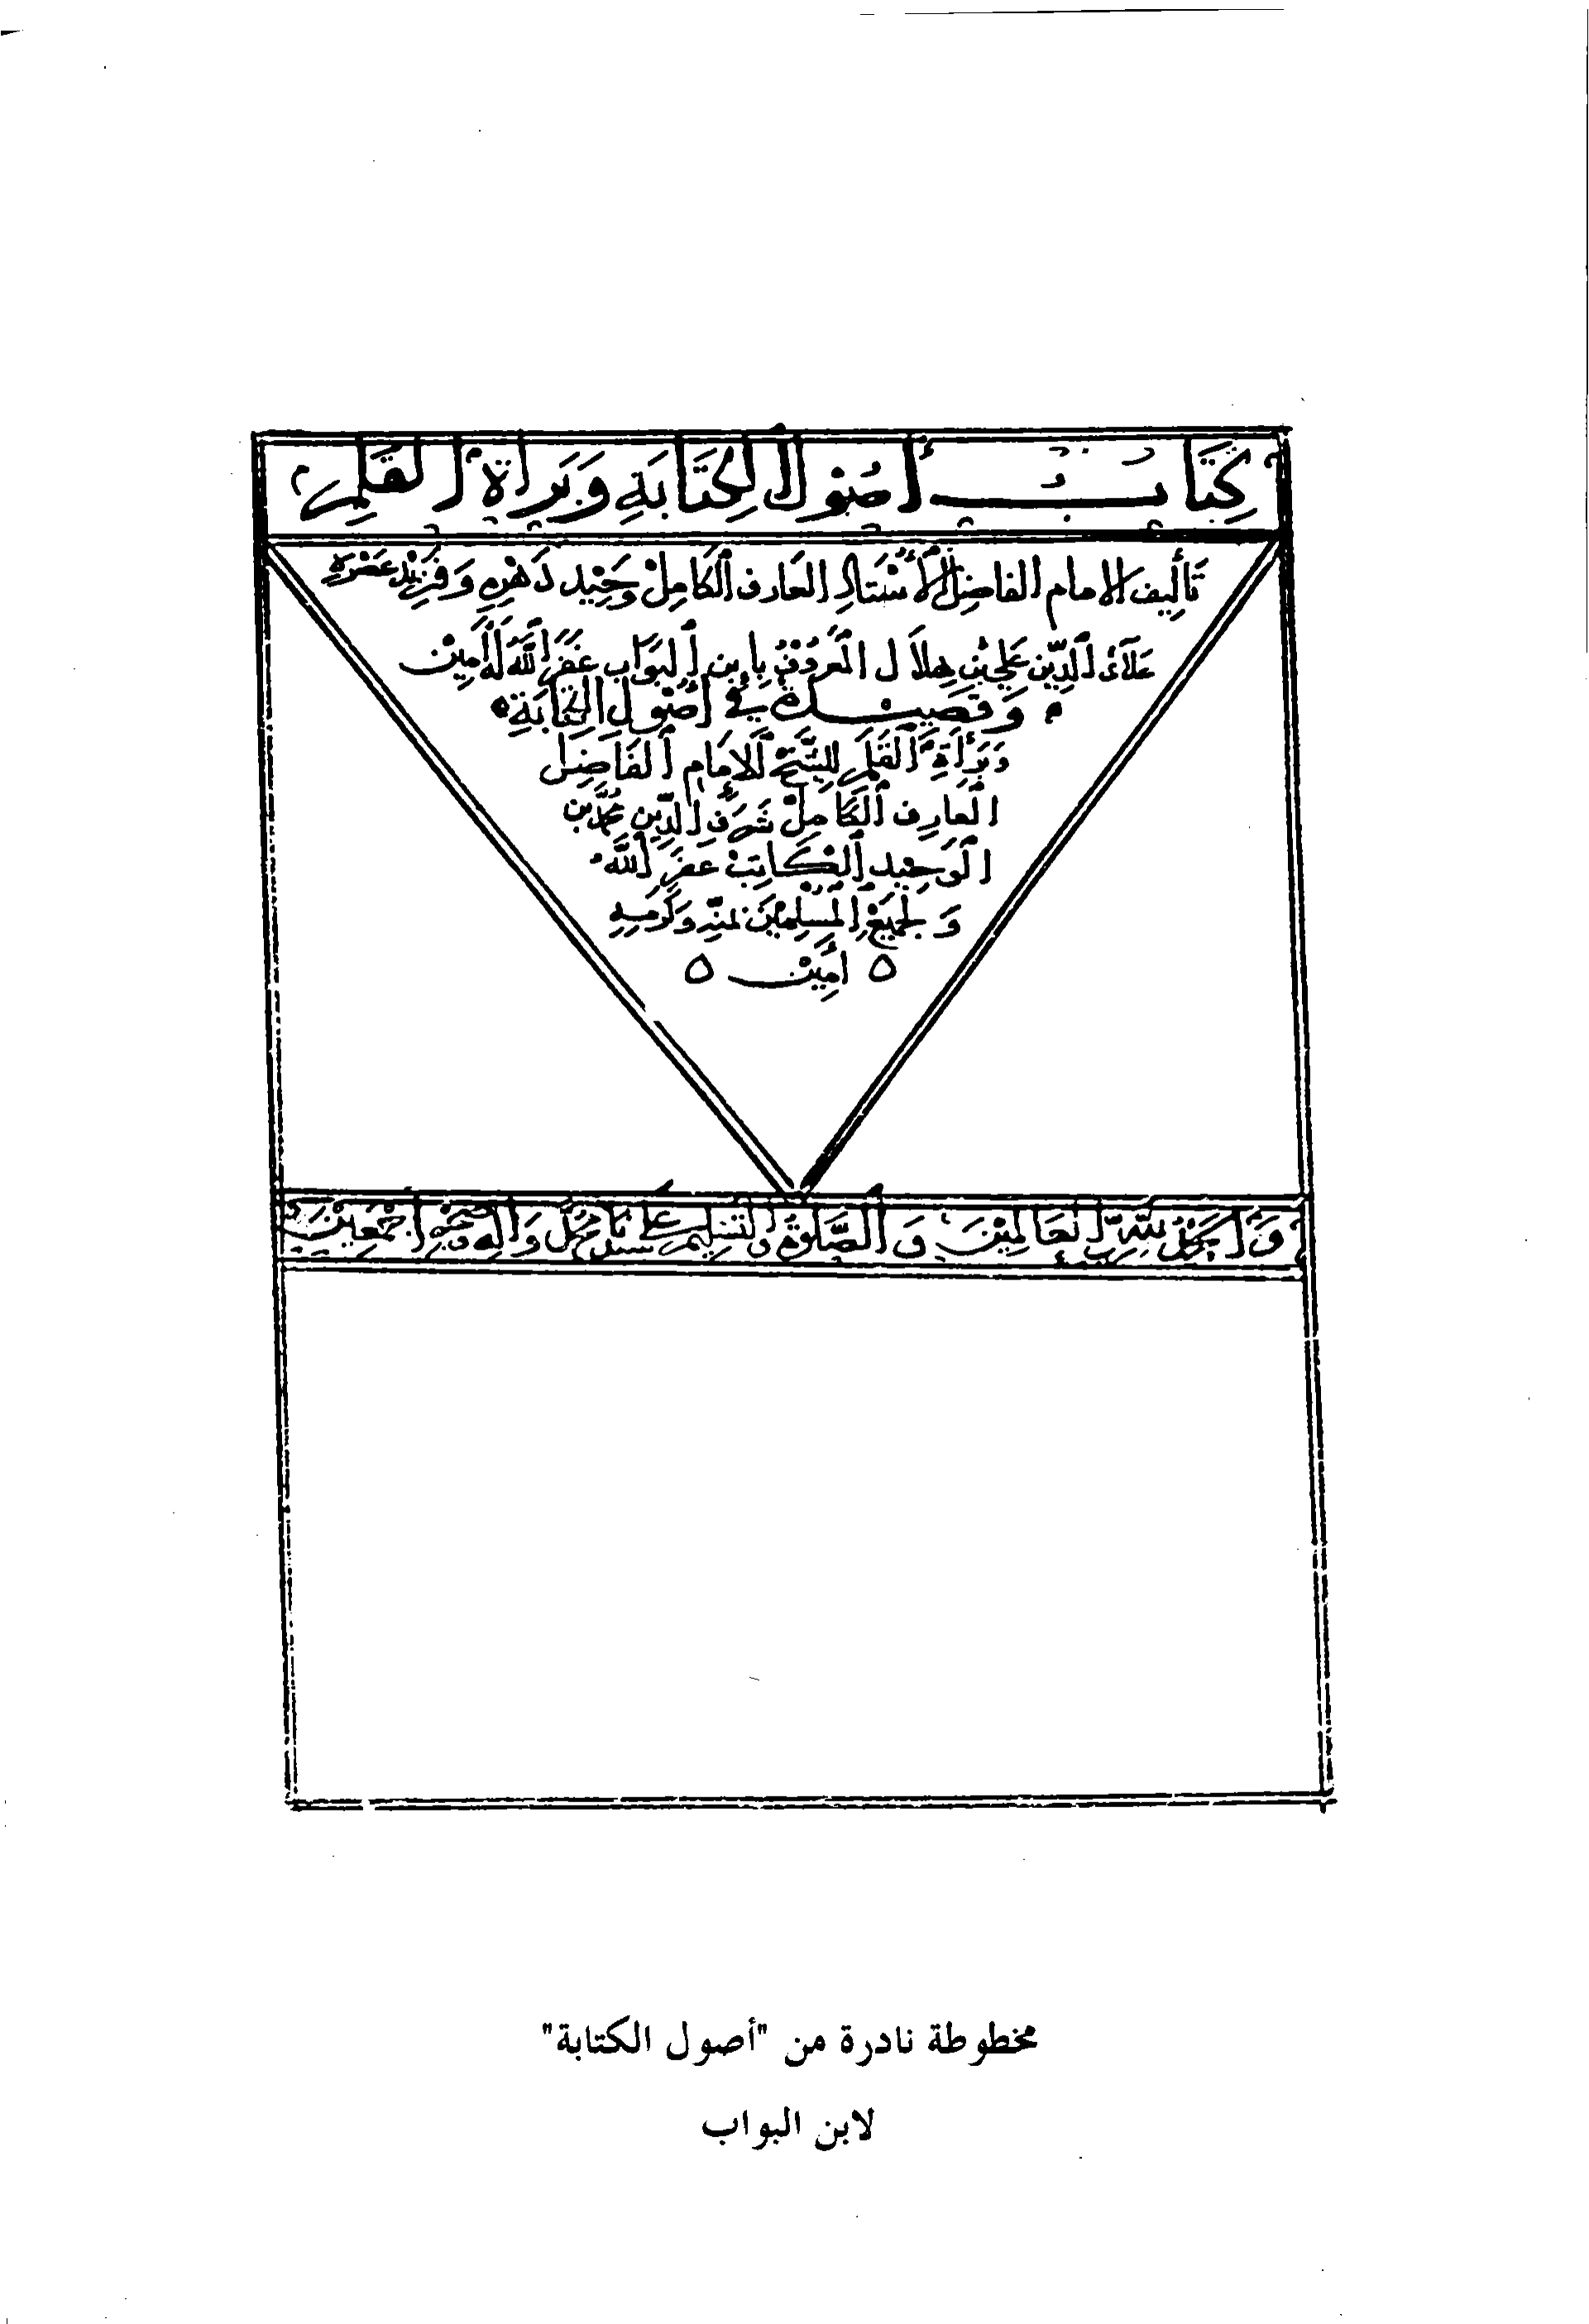 كِتَابُ أُصُولِ الكِتَابَةِ وَبَرَاةِ القَلَمِ
تَأْلِيف الامام الفاضِل الأُسْتَاد العَارف الكَامِلْ وَحِيْد دَهْرِهِ وَفَرِيْد عَصْرِهِ
عَلاَئ الدِّين عَلِي بْنِ هِلاَل المَعْرُوْف بِابن البَوَاب غَفَرَ اللَّه لَهُ اَمِيْن
وَقَصِيْدَة فِي أُصُوْل الكِتَابَةِ
وَبَرَأةِ القَلَمِ لِلشَّيْخ الاِمَامِ الفَاضِل
العَارِف الكَامِلْ شَرَف الدِّين مُحَمَّد بن
الوَحِيد الكَاتِبْ غَفَرَ اللَّه
وَلِجَمِيْعِ المُسْلِمِيْنَ بمَنِّهِ وَكَرَمِهِ
ه اَمِيْن ه
وَالحَمْدُ لِلَّهِ رَبِّ العَالَمِيْنَ وَالصَّلوةُ وَالتَسْلِيم عَلَى سَيِّدِنَا مُحَمَّد وَآلِهِ وَصَحْبِهِ اَجْمَعِيْنَ
مخطوطة نادرة من "أصول الكتابة"
لابن البواب